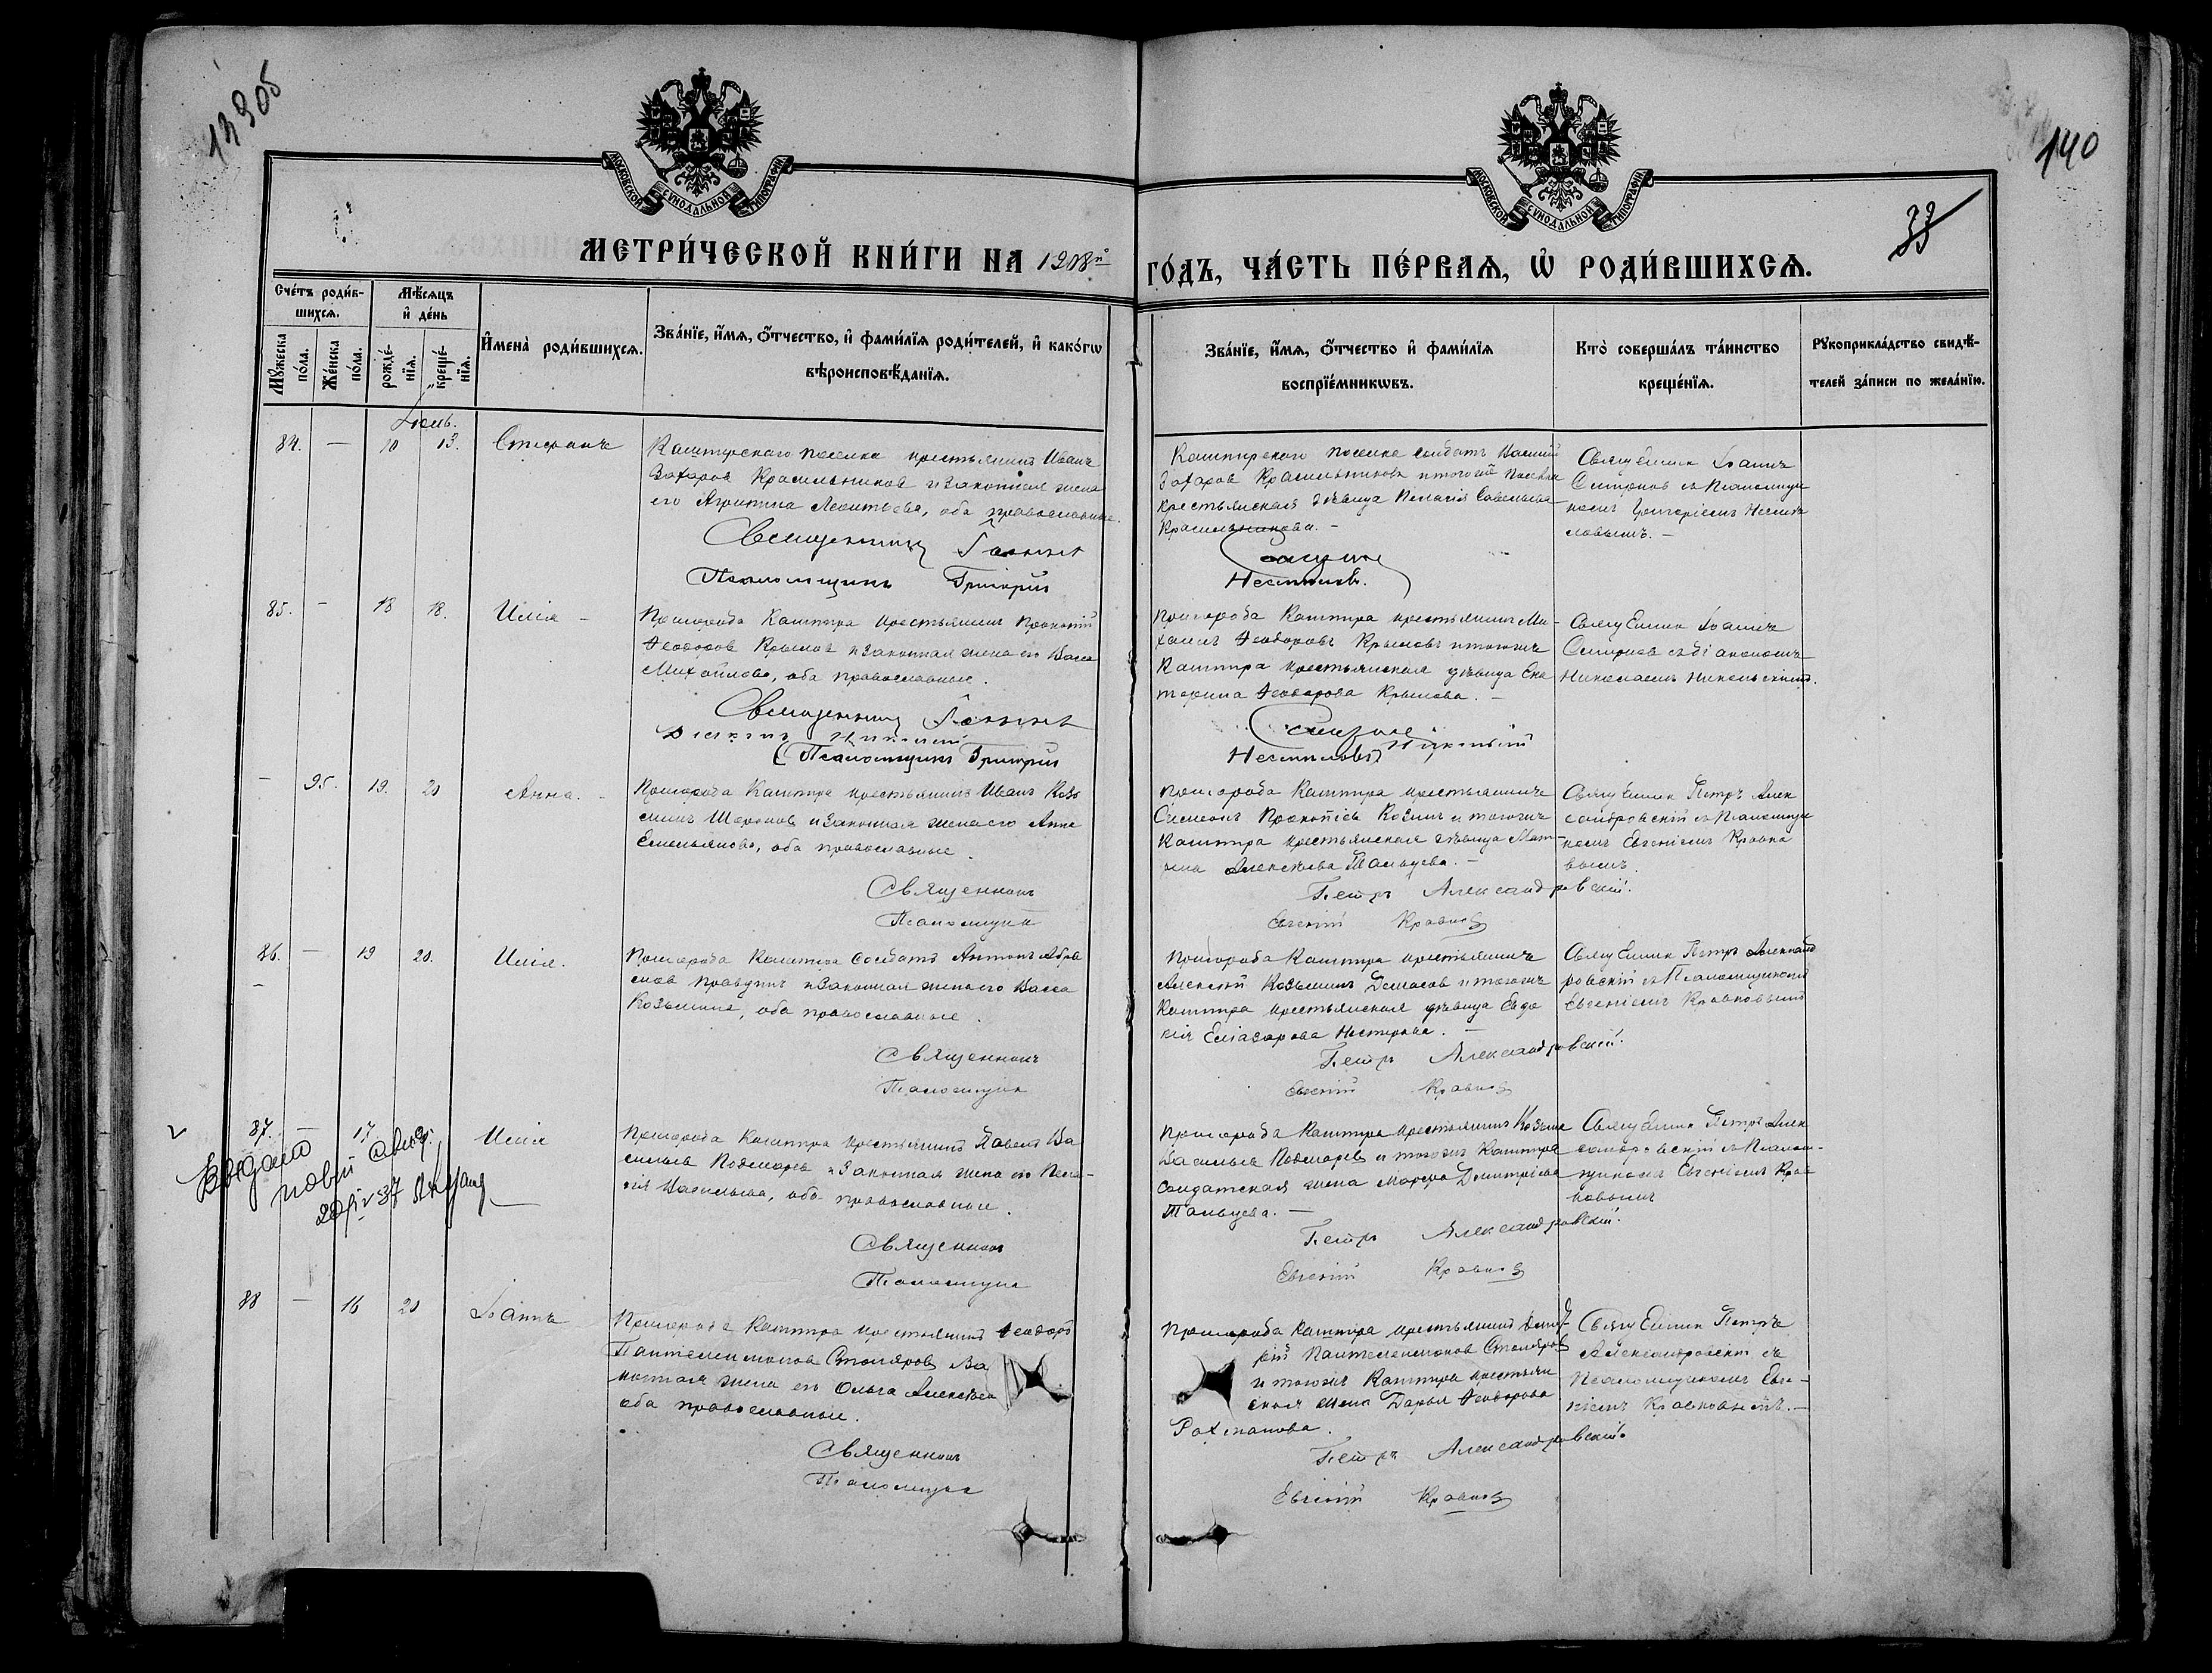 139об
140
33
МОСКОВСКОЙ СѴНОДАЛЬНОЙ ТИПОГРАФІИ
МОСКОВСКОЙ СѴНОДАЛЬНОЙ ТИПОГРАФІИ
МЕТРИ́ЧЕСКОЙ КНИ́ГИ НА 1908й
ГО́ДЪ, ЧА́СТЬ ПЕ́РВАѦ, Ѡ҆ РОДИ́ВШИХСѦ.
Сче́тъ роди́в-
шихсѧ.
Мꙋ́жеска по́ла.
Же́нска по́ла.
Мѣ́сѧцъ
и҆ де́нь
рожде́-
нїѧ.
креще́-
нїѧ.
И҆мена̀ роди́вшихсѧ.
Зва́нїе, и҆́мѧ, о҆́тчество, и҆ фами́лїѧ роди́телей, и҆ како́гѡ
вѣроисповѣ́данїѧ.
Зва́нїе, и҆́мѧ, о҆́тчество и҆ фами́лїѧ
воспрїе́мникѡвъ.
Кто̀ соверша́лъ та́инство
креще́нїѧ.
Рꙋкоприкла́дство свидѣ́-
телей за́писи по жела́нїю.
Іюль.
84. — 10 13. Стефанъ
Каштирскаго поселка крестьянинъ Иванъ
Захаровъ Красильниковъ и законная жена
его Агрипина Леонтьева, оба православные.
Священникъ Іоаннъ
Псаломщикъ Григорій
Каштирскаго поселка солдатъ Василій
Захаровъ Красильниковъ и того же поселка
крестьянская дѣвица Пелагія Савельева
Красильникова. —
Смирнов
Несмѣловъ.
Священник Іоаннъ
Смирновъ съ псаломщи
комъ Григоріемъ Несмѣ
ловымъ. —
85. — 18 18. Илія —
Пригорода Каштира крестьянинъ Прокопій
Ѳеодоровъ Крымовъ и законная жена его Васса
Михайлова, оба православные.
Священникъ Іоаннъ
Діаконъ Николай
Псаломщикъ Григорій
Пригорода Каштира крестьянинъ Ми-
хаилъ Ѳеодоровъ Крымовъ и того же
Каштира крестьянская дѣвица Ека
терина Ѳеодорова Крымова. —
Смирнов
Несмѣловъ
Священник Іоаннъ
Смирновъ съ діакономъ
Николаемъ Никольскимъ.
— 95. 19. 20 Анна. —
Пригорода Каштира крестьянинъ Иванъ Козь
минъ Шароновъ и законная жена его Анна
Емельянова, оба православные.
Священникъ
Псаломщик
Пригорода Каштира крестьянинъ
Симеонъ Прокопіев Козинъ и того же
Каштира крестьянская дѣвица Мат-
рена Алексѣева Тальцева. —
Петръ Александровскій.
Евгеній Кравков
Священник Петръ Алек
сандровскій съ псаломщи
комъ Евгеніемъ Кравко
вымъ.
86. — 19 20. Илія.
Пригорода Каштира солдатъ Антонъ Абра
мов и законная жена его Васса
Козьмина, оба православные.
Священникъ
Псаломщик
Пригорода Каштира крестьянинъ
Алексій Козьминъ и того же
Каштира крестьянская дѣвица Евдо
кія Еліазарова Нестерова. —
Петръ Александровскій.
Евгеній Кравков
Священник Петръ Александ
ровскій съ псаломщикомъ
Евгеніемъ Кравковымъ
87. — 17 Илія
Выдано
новый
20/IV 37
Пригорода Каштира крестьянинъ Павелъ Ва
сильев и законная жена его Пела-
гія Васильева, оба православные.
Священникъ
Псаломщик
Пригорода Каштира крестьянинъ Козьма
Васильев и того же Каштира
солдатская жена Марѳа Димитріева
Тальцева. —
Петръ Александровскій.
Евгеній Кравков
Священник Петръ Алек
сандровскій съ псалом-
щикомъ Евгеніемъ Крав
ковымъ
88 — 16 20 Іоаннъ
Пригорода Каштира крестьянинъ Ѳеодоръ
Пантелеимоновъ Столяровъ и за
конная жена его Ольга Алексѣева
оба православные.
Священникъ
Псаломщик
Пригорода Каштира крестьянинъ Димит
рій Пантелеимоновъ Столяровъ
и того же Каштира крестьян
ская жена Дарья Ѳеодорова
Рахманова.
Петръ Александровскій.
Евгеній Кравков
Священник Петръ
Александровскій съ
псаломщикомъ Евге-
ніемъ Кравковымъ. —